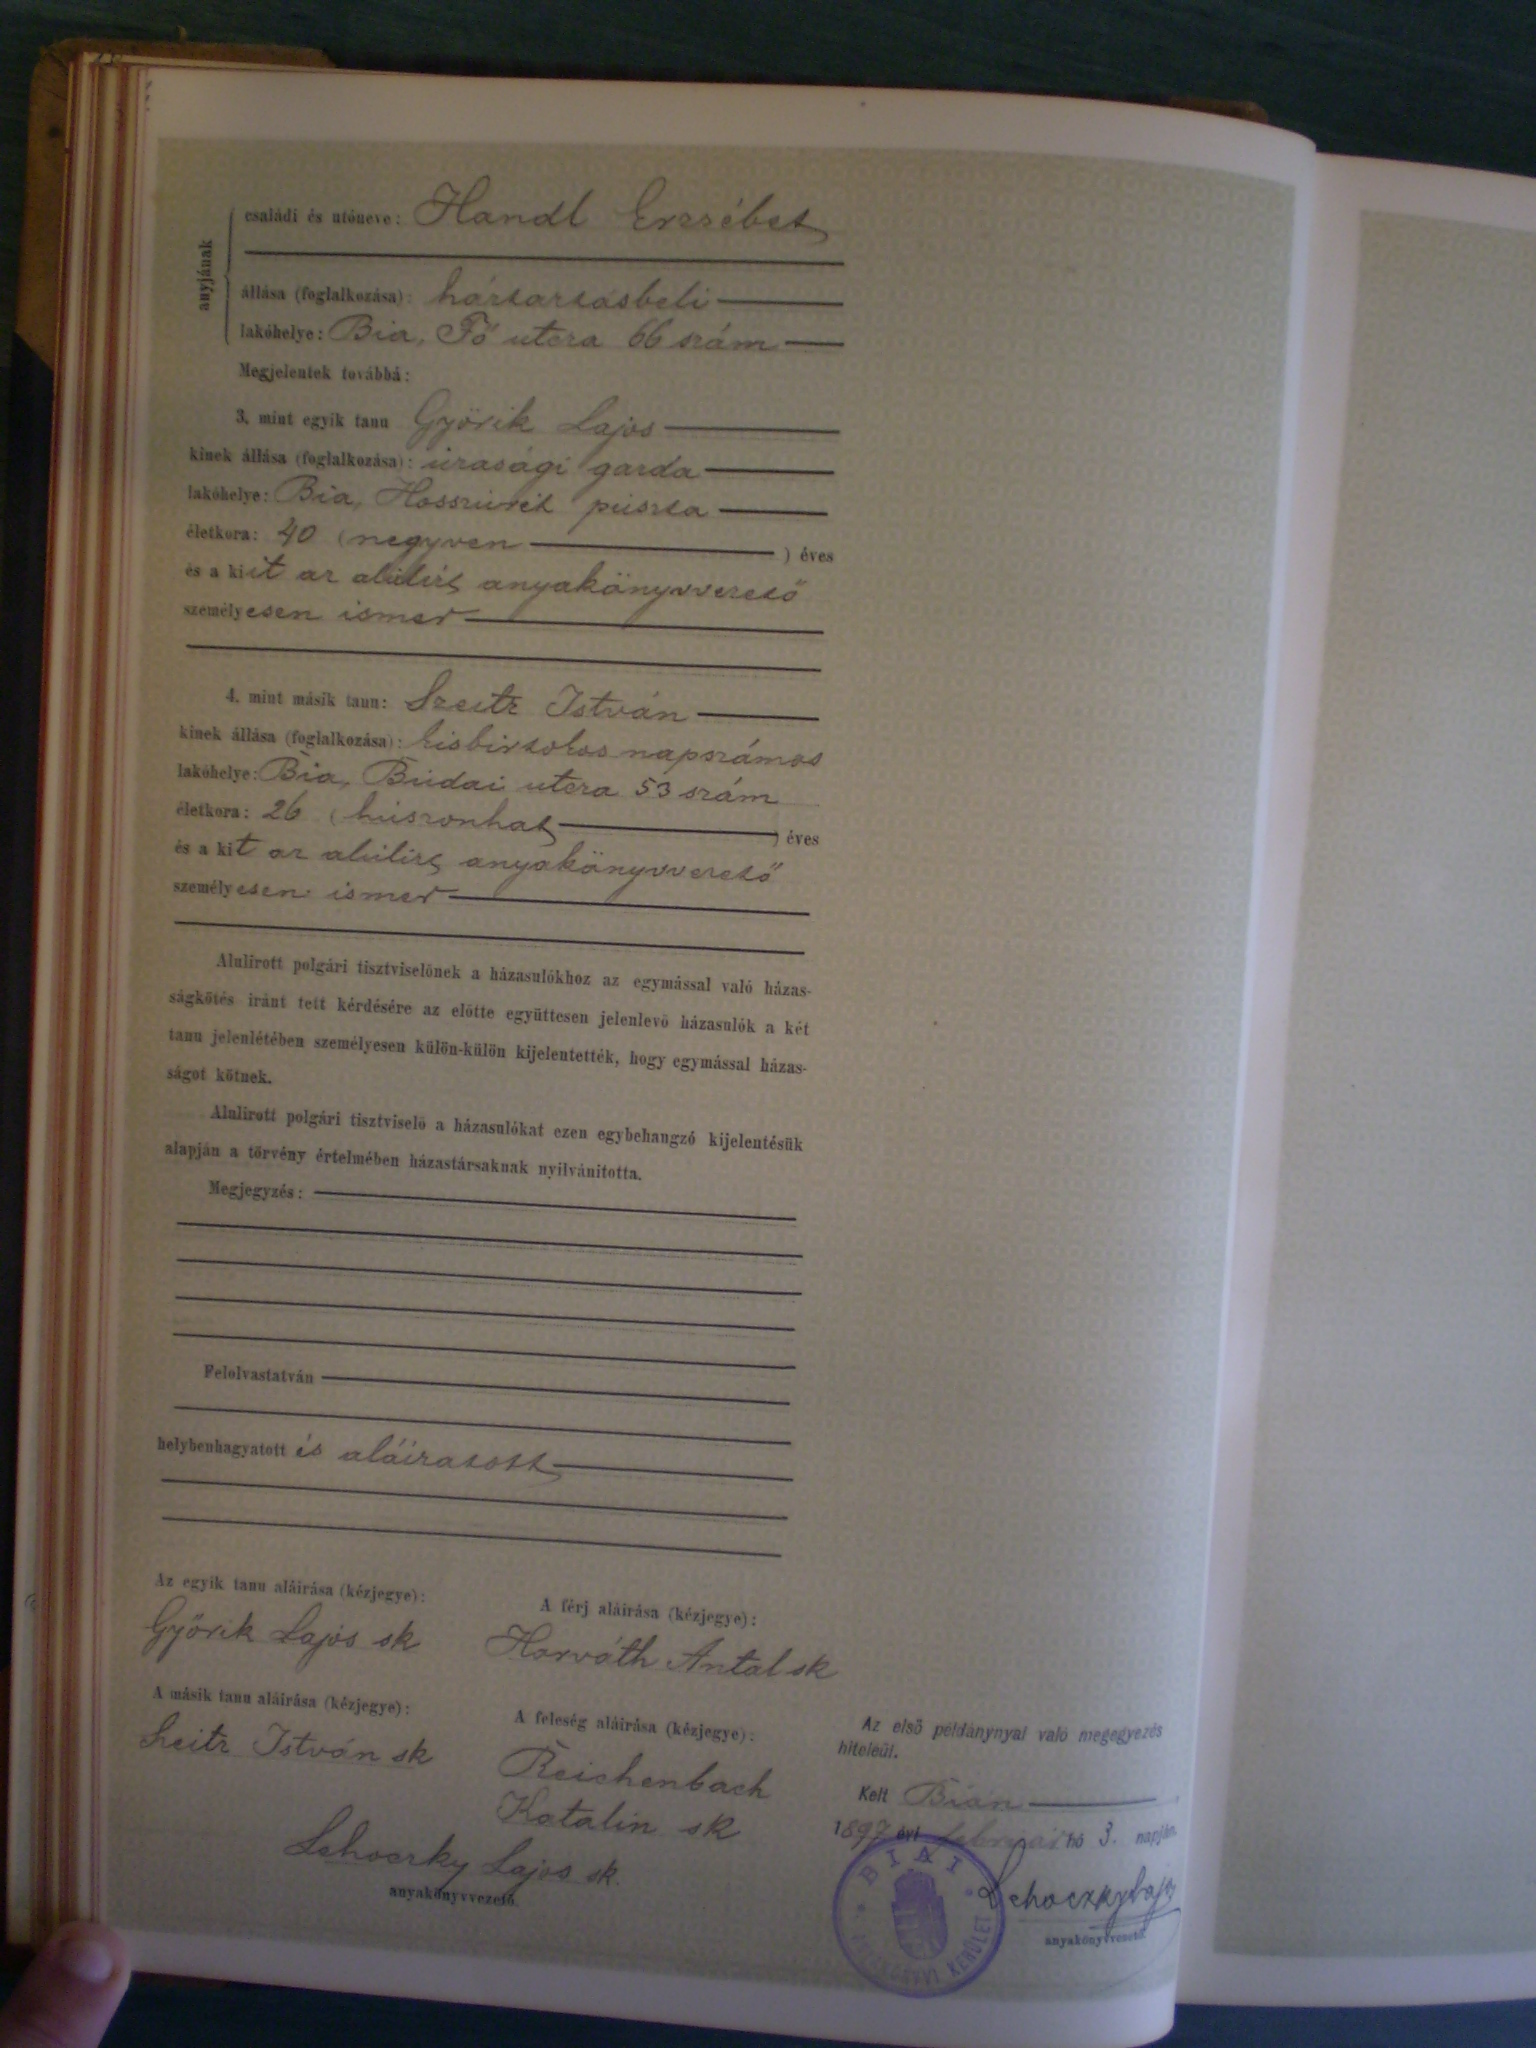 anyjának
családi és utóneve: Handl Erzsébet
állása (foglalkozása): háztartásbeli
lakóhelye: Bia, Fő utcza 66 szám
Megjelentek továbbá:
3. mint egyik tanu Győrik Lajos
kinek állása (foglalkozása): urasági garda
lakóhelye: Bia, Hosszúrét puszta
életkora: 40 (negyven ) éves
és a kiit az alulirt anyakönyvvezető
személyesen ismer
4. mint másik tanu: Szeitz István
kinek állása (foglalkozása): kisbirtokos napszámos
lakóhelye: Bia, Budai utcza 53 szám
életkora: 26 (huszonhat ) éves
és a kit az alulirt anyakönyvvezető
személyesen ismer
Alulirott polgári tisztviselőnek a házasulókhoz az egymással való házas-
ságkötés iránt tett kérdésére az előtte együttesen jelenlevő házasulók a két
tanu jelenlétében személyesen külön-külön kijelentették, hogy egymással házas-
ságot kötnek.
Alulirott polgári tisztviselő a házasulókat ezen egybehangzó kijelentésük
alapján a törvény értelmében házastársaknak nyilvánitotta.
Megjegyzés:
Felolvastatván
helybenhagyatott és aláiratott
Az egyik tanu aláirása (kézjegye):
Győrik Lajos sk
A férj aláirása (kézjegye):
Horváth Antal sk
A másik tanu aláirása (kézjegye):
Szeitz István sk
A feleség aláirása (kézjegye):
Reichenbach
Katalin sk
Lehoczky Lajos sk.
anyakönyvvezető.
Az első példánynyal való megegyezés
hiteléül.
Kelt Bián
1897 évi február hó 3. napján.
Lehoczky Lajos
anyakönyvvezető.
BIAI
ANYAKÖNYVI KERÜLET